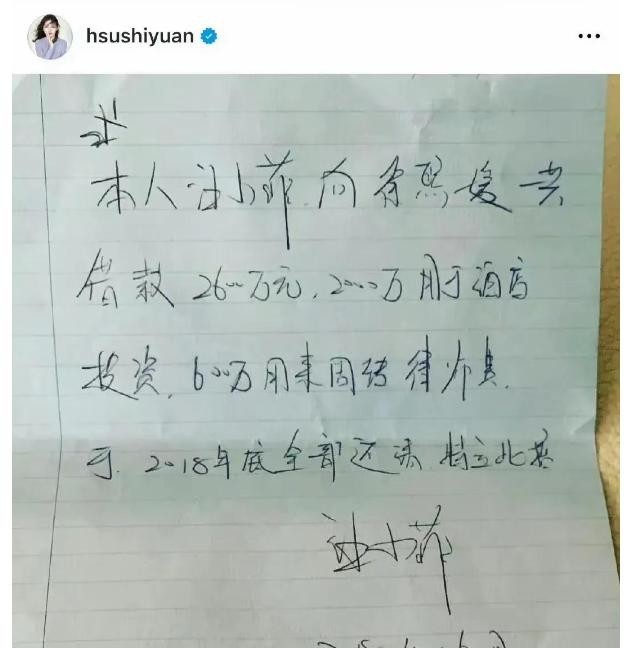 hsushiyuan
本人汪小菲向徐熙媛共
借款2600万元,2000万用于酒店
投资,600万用来周转律师费.
于.2018年底全部还清.特立此据
汪小菲